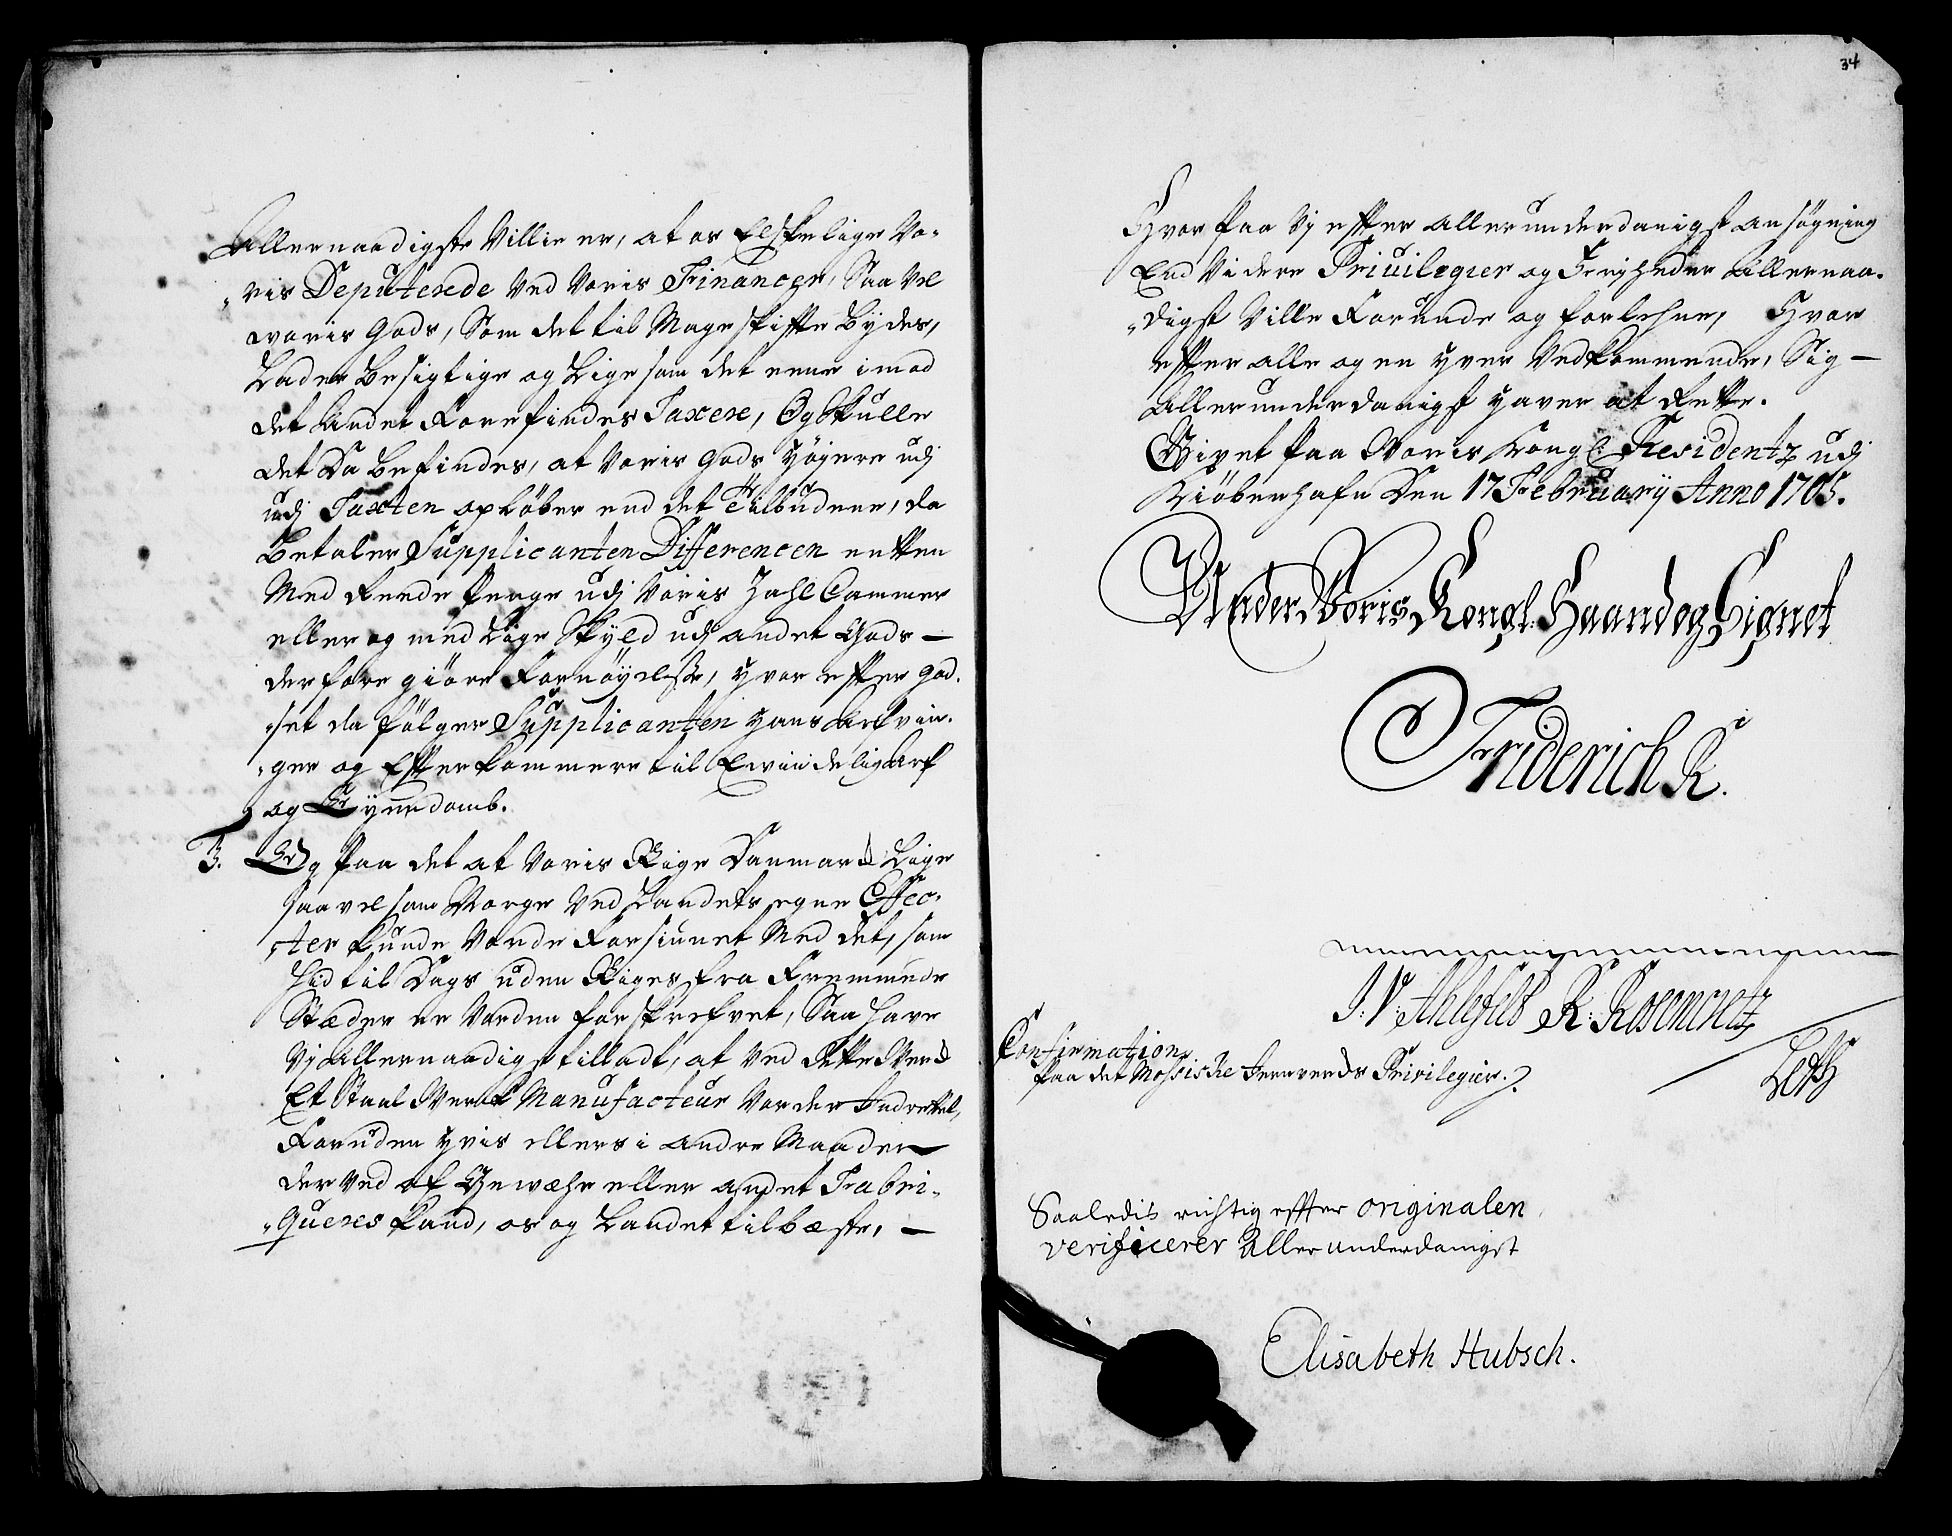 Allernaadigste Villie er, at os Elskelige Vo-
"ris Deputerede ved Voris Financer, Saa vel
woris gods, Som det til Mageskiffte bydes,
Lader besigtige og Ligesom det eene imod
det Andet Forefindes Taxere, Og Skulle
det Da befindes, at Voris gods høyere udj
udj Taxten opløber end det Tilbudene, da
betaler Supplicanten Differencen entten
Med Reede penge udj Voris Zahl Cammer
eller og med Lige Skyld udj andet Gods —
derfore giøre Fornøyelsse, hvor effter god-
"set da følger Supplicanten hans Arfvin-
"ger og Efterkommere til Ewindelig Arf
og Eyendomb.
3. Og paa det at Voris Rige Danmark Lige
saavelsom Norge ved Landets egne Effec-
"ter kunde vorde Forsiunet Med det, som
hid til Dags uden Riges fra Fremmede
Stæder er vorden forskrefvet, Saa have
Vj Allernaadigst tilladt, at ved dette Werk
Et Staal Werk Manufacteur vorder Indrettet,
Foruden hvis ellers i andre Maader
der ved af Gewæhr eller andet Fabri-
"queres kand, os og Landet til bæste, —
34
Hvor paa Vj effter allerunderdanigst ansøgning
End Videre Privilegier og Frijheder Allernaa-
"digst Ville Forunde og forlehne, Hvor
effter alle og en hver Vedkommende, Sig —
Allerunderdanigst haver at Rette.
Givet paa Voris Kongl: Residentz udj
Kiøbenhafn Den 17 Februarij Anno 1705.
Under Voris Kongl. Haand og Signet
Friderich R.
J: V: Ahlefeld K: Rosencretz
Leth
Confirmation
paa det Mossiske Jernverds Privilegier.
Saaledis richtig effter originalen
verificerer Allerunderdanigst
Elisabeth Hubsch.